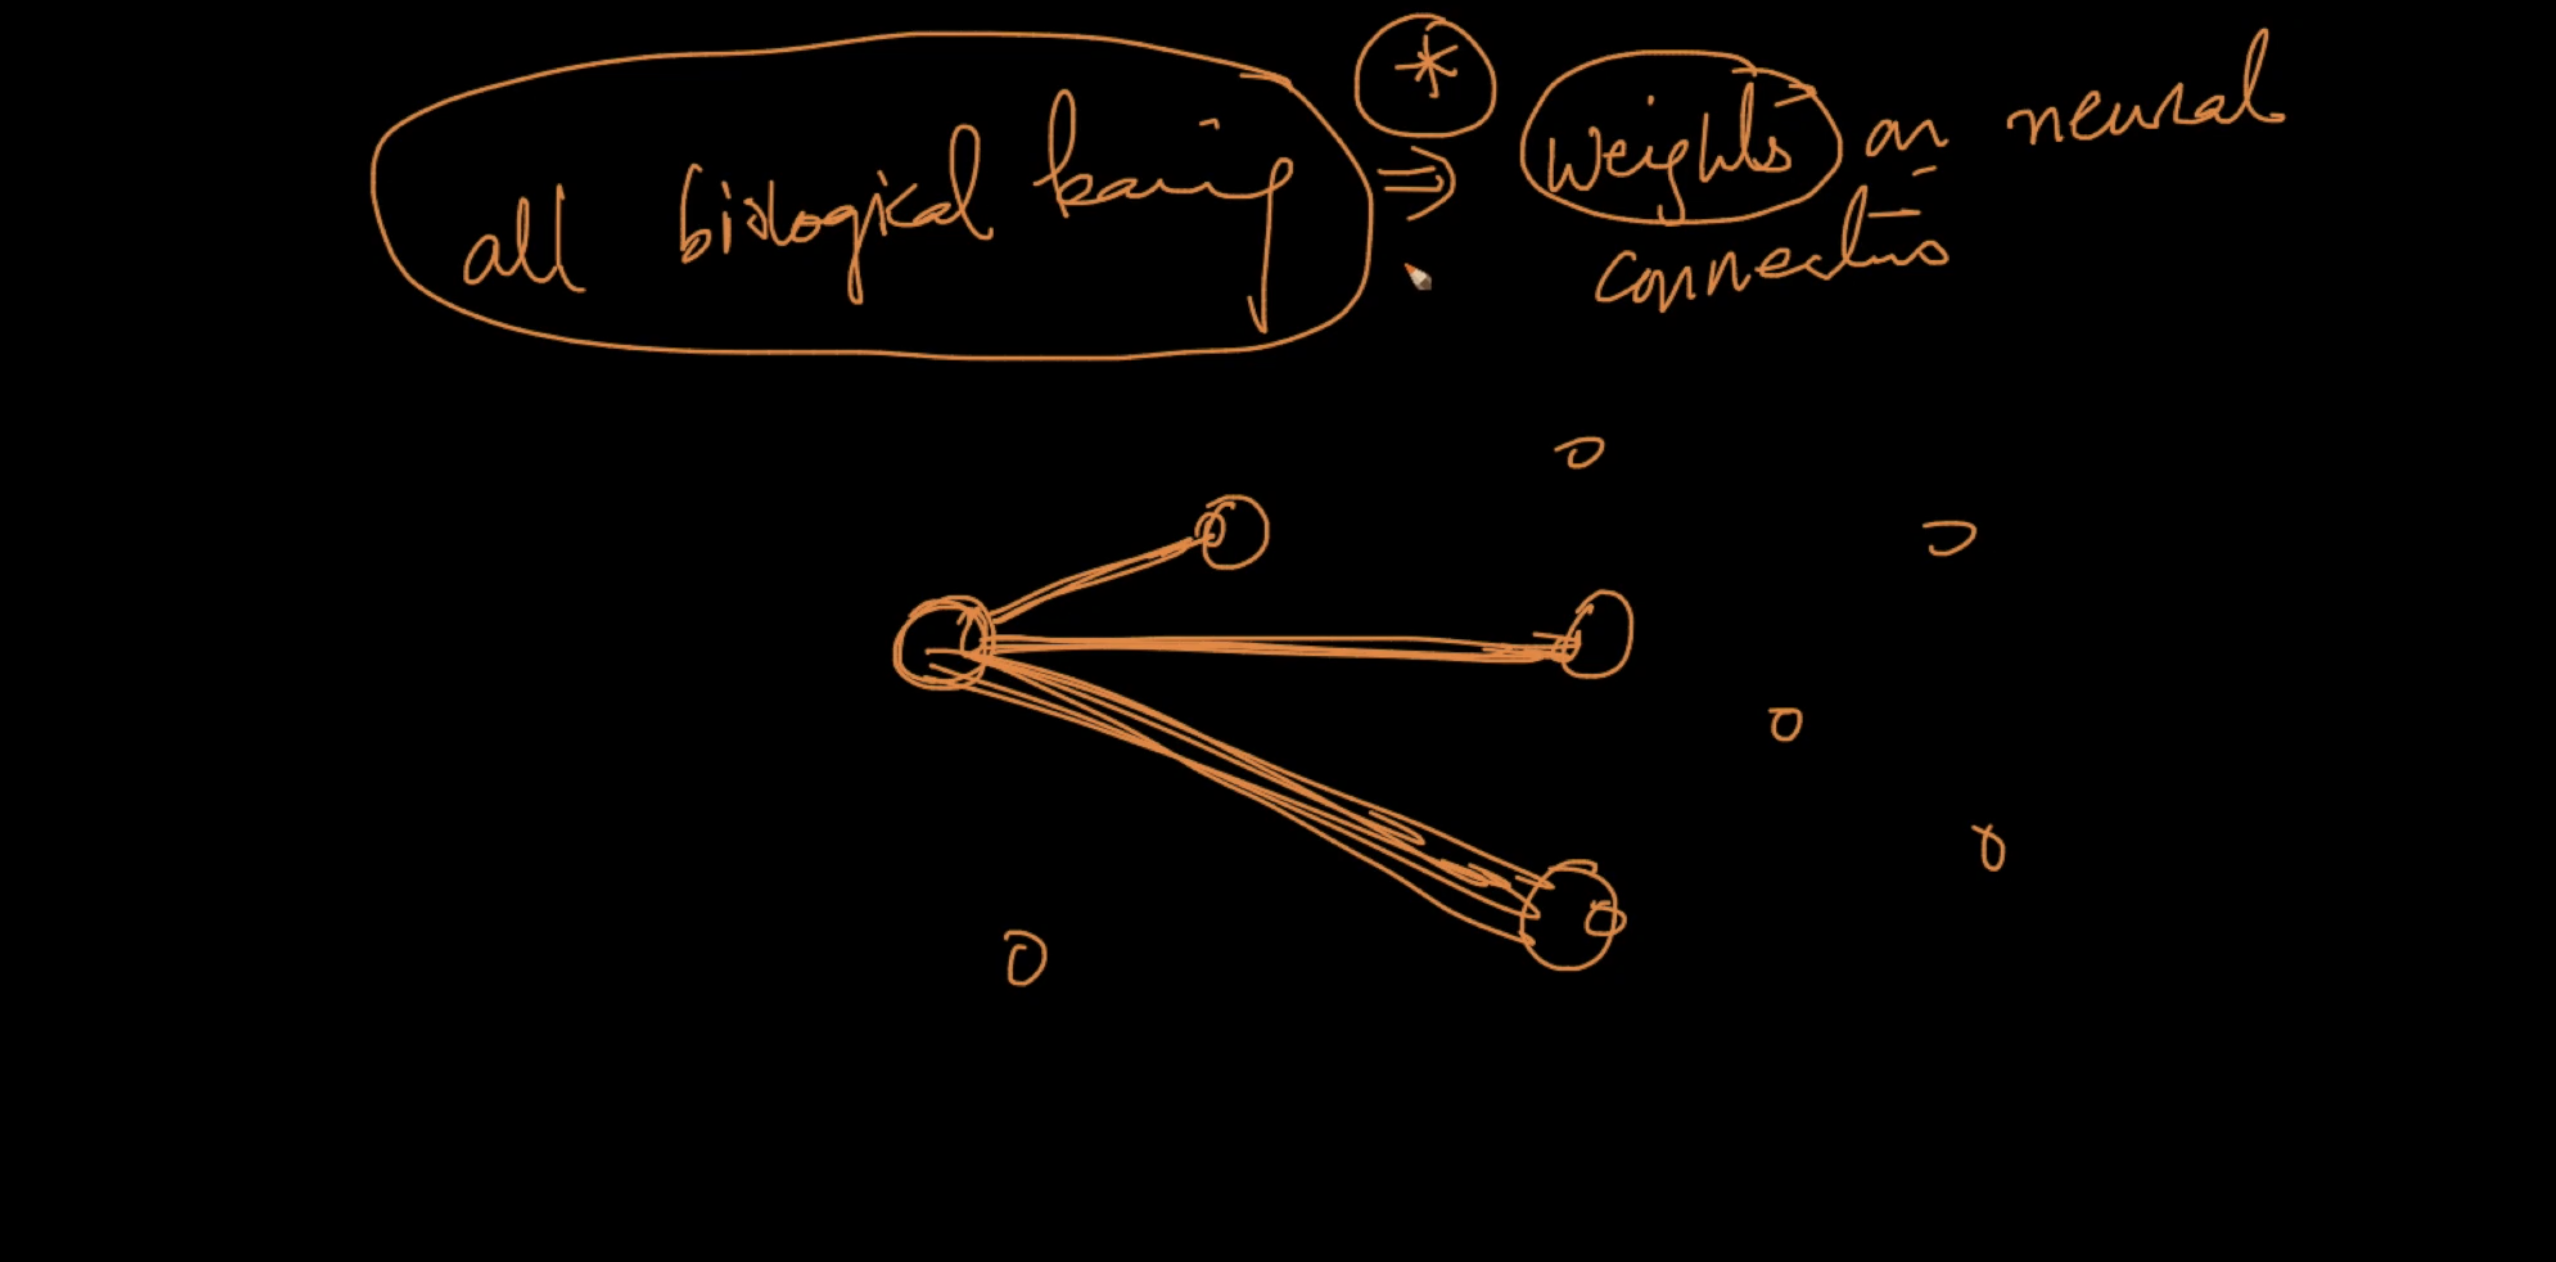 all biological being ⇒ * weights on neural
connections